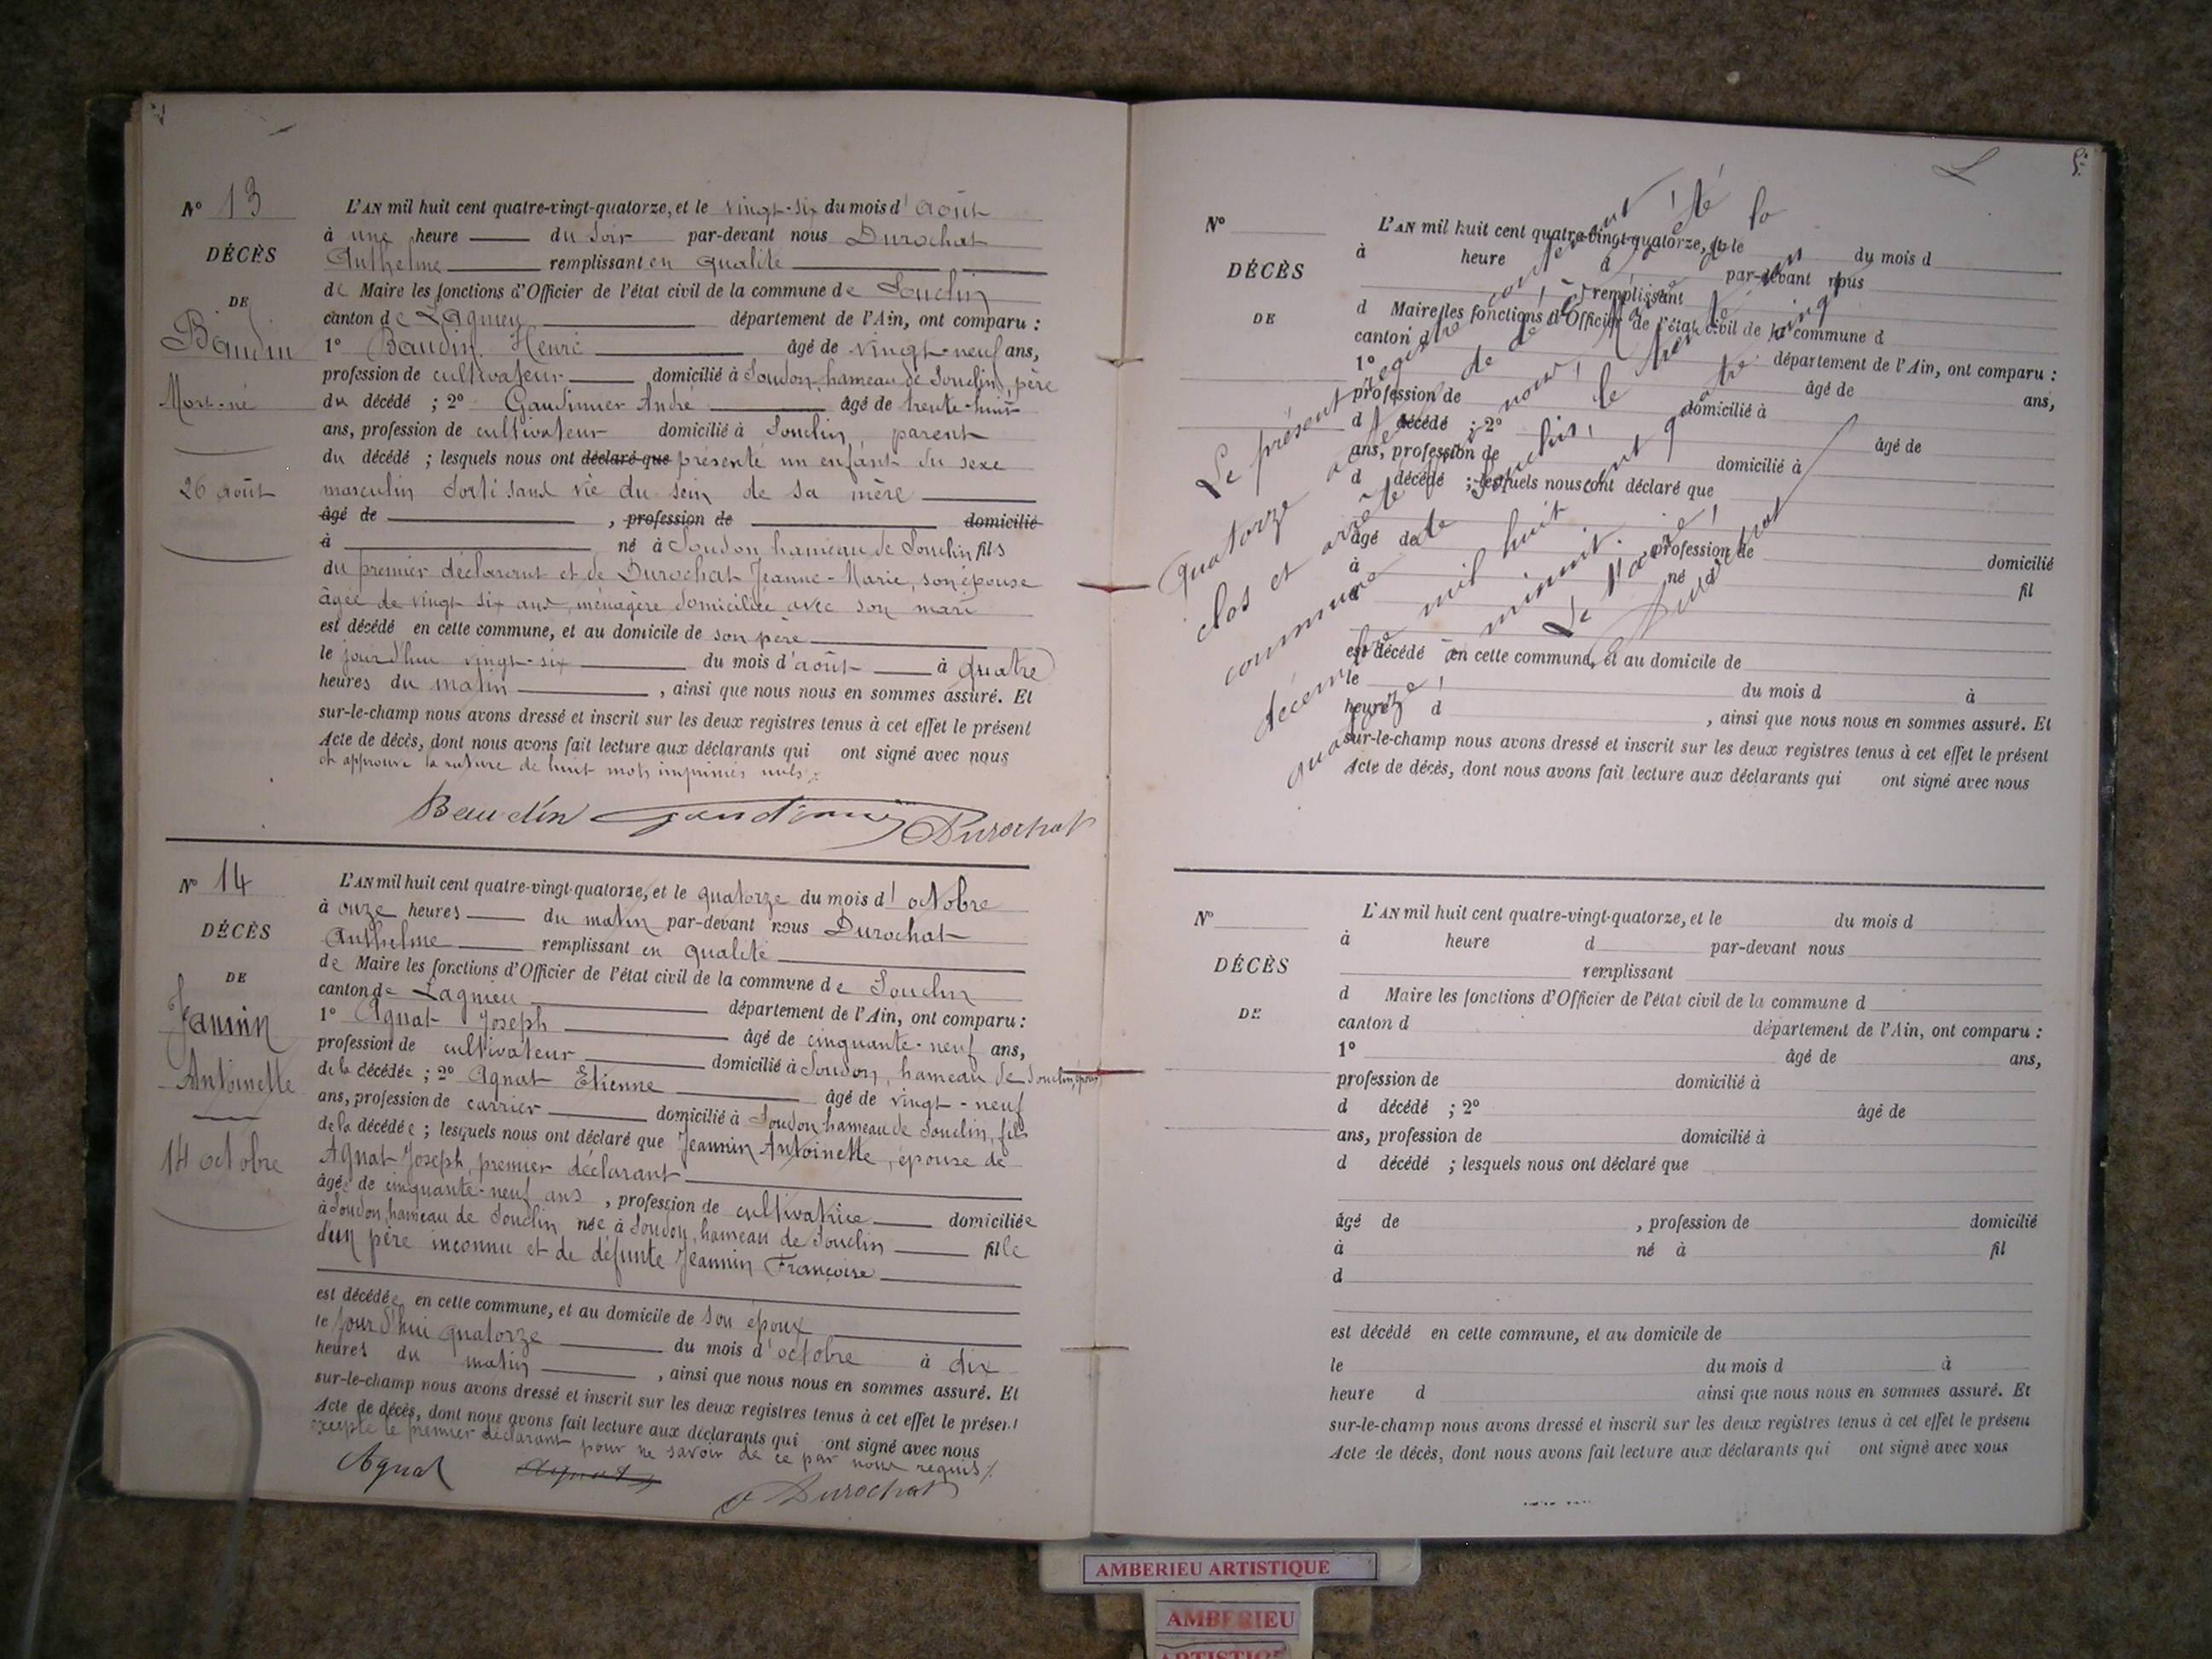 N° 13
DÉCÈS
DE
Baudin
Mort-né
26 août
L'AN mil huit cent quatre-vingt-quatorze, et le vingt-six du mois d'août
à une heure du soir par-devant nous Durochat
Anthelme remplissant en qualité
de Maire les fonctions d'Officier de l'état civil de la commune de Souclin
canton de Lagnieu département de l'Ain, ont comparu :
1° Baudin Henri âgé de vingt-neuf ans,
profession de cultivateur domicilié à Soudon, hameau de Souclin, père
du décédé ; 2° Gaudinier André âgé de trente-huit
ans, profession de cultivateur domicilié à Souclin, parent
du décédé ; lesquels nous ont déclaré que présenté un enfant du sexe
masculin sorti sans vie du sein de sa mère
âgé de , profession de domicilié
à né à Soudon hameau de Souclin fils
du premier déclarant et de Durochat Jeanne-Marie, son épouse
âgée de vingt six ans, ménagère domiciliée avec son mari
est décédé en cette commune, et au domicile de son père
le jourd'hui vingt-six du mois d'août à quatre
heures du matin , ainsi que nous nous en sommes assuré. Et
sur-le-champ nous avons dressé et inscrit sur les deux registres tenus à cet effet le présent
Acte de décès, dont nous avons fait lecture aux déclarants qui ont signé avec nous
et approuvé la rature de huit mots imprimés nuls
Beaudin Gaudinier Durochat
N° 14
DÉCÈS
DE
Jannin
Antoinette
14 octobre
L'AN mil huit cent quatre-vingt-quatorze, et le quatorze du mois d'octobre
à onze heures du matin par-devant nous Durochat
Anthelme remplissant en qualité
de Maire les fonctions d'Officier de l'état civil de la commune de Souclin
canton de Lagnieu département de l'Ain, ont comparu :
1° Agnat Joseph âgé de cinquante-neuf ans,
profession de cultivateur domicilié à Soudon, hameau de Souclin, époux
de la décédée ; 2° Agnat Etienne âgé de vingt-neuf
ans, profession de carrier domicilié à Soudon hameau de Souclin, fils
de la décédée ; lesquels nous ont déclaré que Jeannin Antoinette, épouse de
Agnat Joseph, premier déclarant
âgée de cinquante-neuf ans , profession de cultivatrice domiciliée
à Soudon, hameau de Souclin née à Soudon, hameau de Souclin fille
d'un père inconnu et de défunte Jeannin Françoise
est décédée en cette commune, et au domicile de son époux
le jourd'hui quatorze du mois d'octobre à dix
heures du matin , ainsi que nous nous en sommes assuré. Et
sur-le-champ nous avons dressé et inscrit sur les deux registres tenus à cet effet le présent
Acte de décès, dont nous avons fait lecture aux déclarants qui ont signé avec nous
excepté le premier déclarant pour ne savoir de ce par nous requis
Agnat Agnat Durochat
N°
DÉCÈS
DE
L'AN mil huit cent quatre-vingt-quatorze, et le du mois d
à heure d par-devant nous
remplissant
d Maire les fonctions d'Officier de l'état civil de la commune d
canton d département de l'Ain, ont comparu :
1° âgé de ans,
profession de domicilié à
d décédé ; 2° âgé de
ans, profession de domicilié à
d décédé ; lesquels nous ont déclaré que
âgé de , profession de domicilié
à né à fil
d
est décédé en cette commune, et au domicile de
le du mois d à
heure d , ainsi que nous nous en sommes assuré. Et
sur-le-champ nous avons dressé et inscrit sur les deux registres tenus à cet effet le présent
Acte de décès, dont nous avons fait lecture aux déclarants qui ont signé avec nous
Le présent registre contenant
quatorze actes de décès a été
clos et arrêté par nous, Maire de la
commune de Souclin, le trente et un
décembre mil huit cent quatre vingt
quatorze, à minuit.
Le Maire,
Durochat
N°
DÉCÈS
DE
L'AN mil huit cent quatre-vingt-quatorze, et le du mois d
à heure d par-devant nous
remplissant
d Maire les fonctions d'Officier de l'état civil de la commune d
canton d département de l'Ain, ont comparu :
1° âgé de ans,
profession de domicilié à
d décédé ; 2° âgé de
ans, profession de domicilié à
d décédé ; lesquels nous ont déclaré que
âgé de , profession de domicilié
à né à fil
d
est décédé en cette commune, et au domicile de
le du mois d à
heure d ainsi que nous nous en sommes assuré. Et
sur-le-champ nous avons dressé et inscrit sur les deux registres tenus à cet effet le présent
Acte de décès, dont nous avons fait lecture aux déclarants qui ont signé avec nous
AMBERIEU ARTISTIQUE
AMBERIEU
ARTISTIQUE